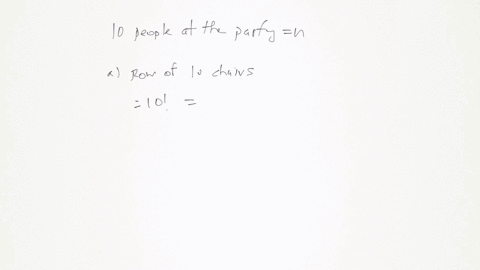 10 people at the party = n
a) Row of 10 chairs
= 10! =